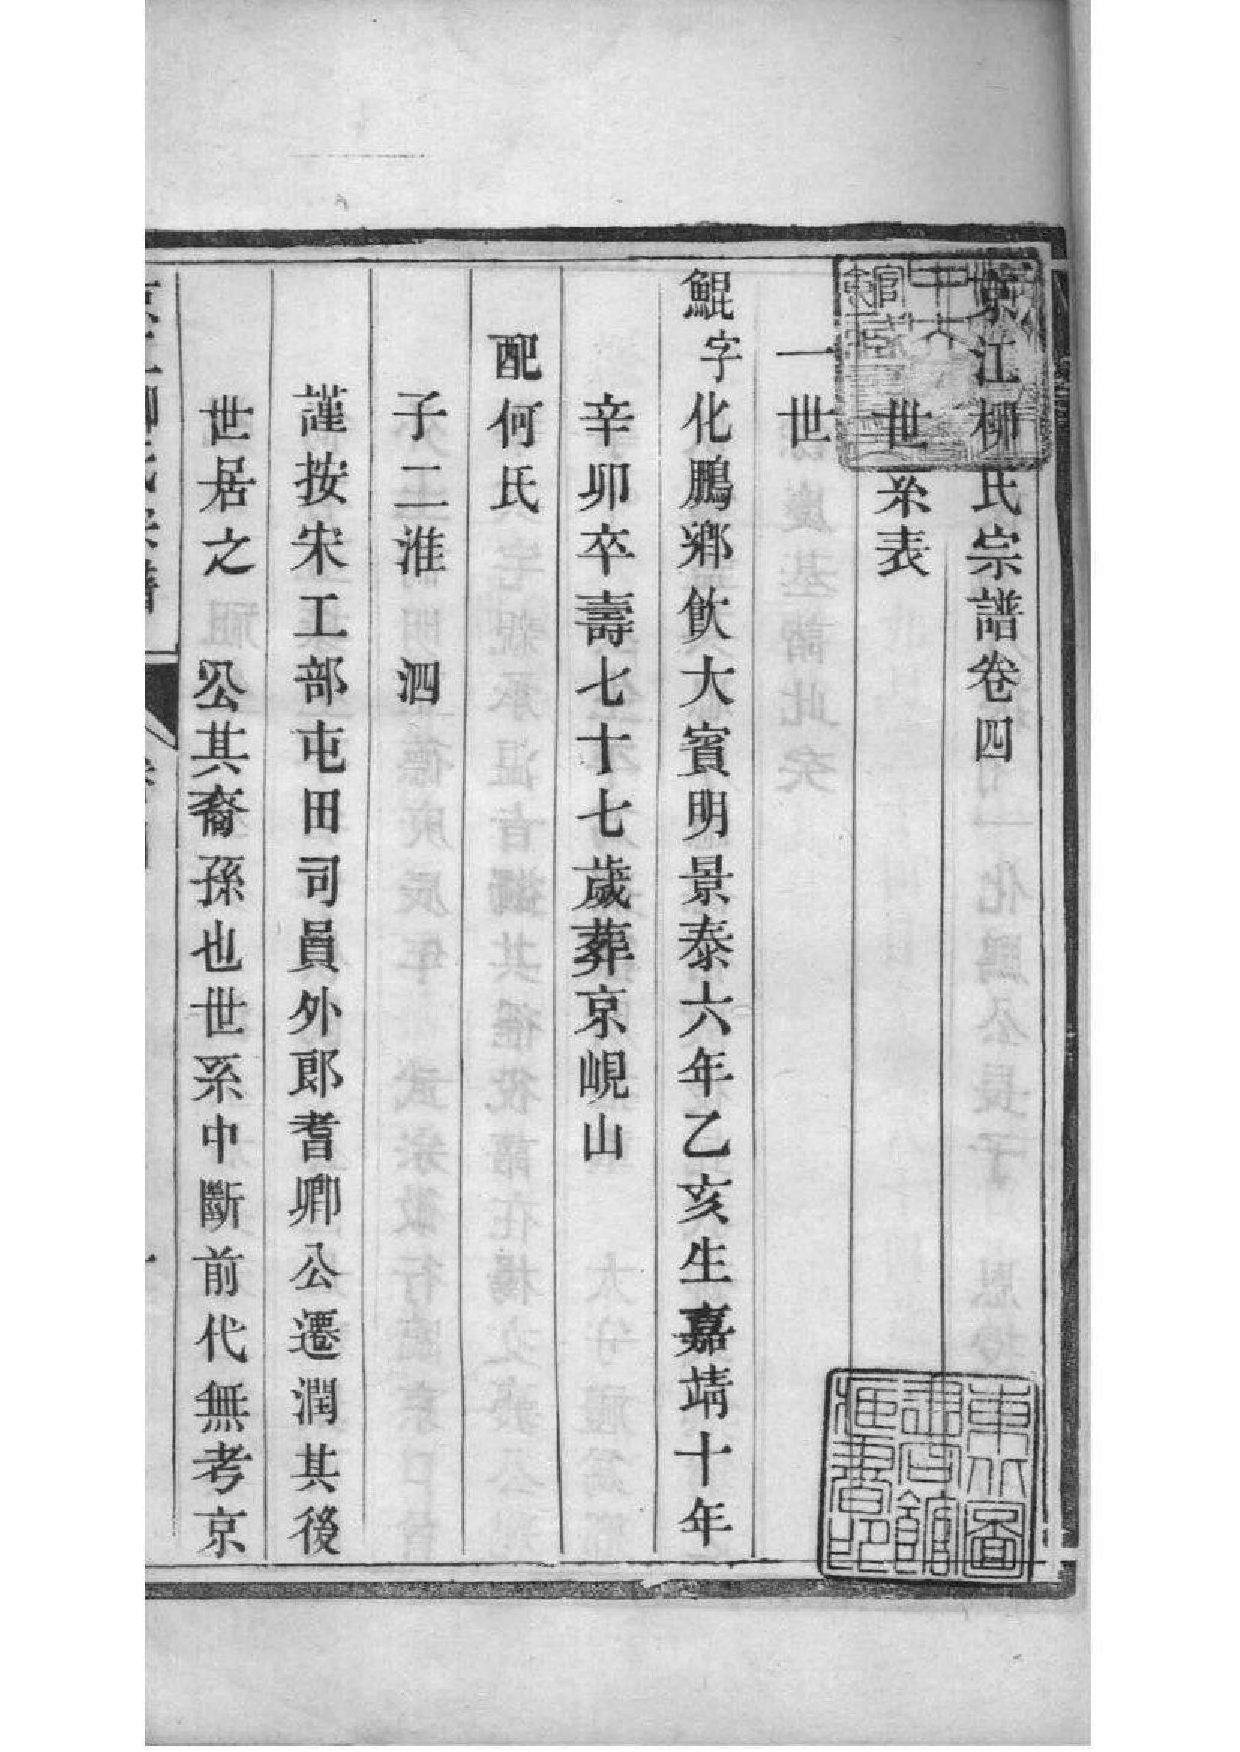 京江柳氏宗譜卷四
世系表
一世
鯤字化鵬鄉飲大賓明景泰六年乙亥生嘉靖十年
辛卯卒壽七十七歲葬京峴山
配何氏
子二淮　泗
謹按宋工部屯田司員外郎耆卿公遷潤其後
世居之　公其裔孫也世系中斷前代無考京